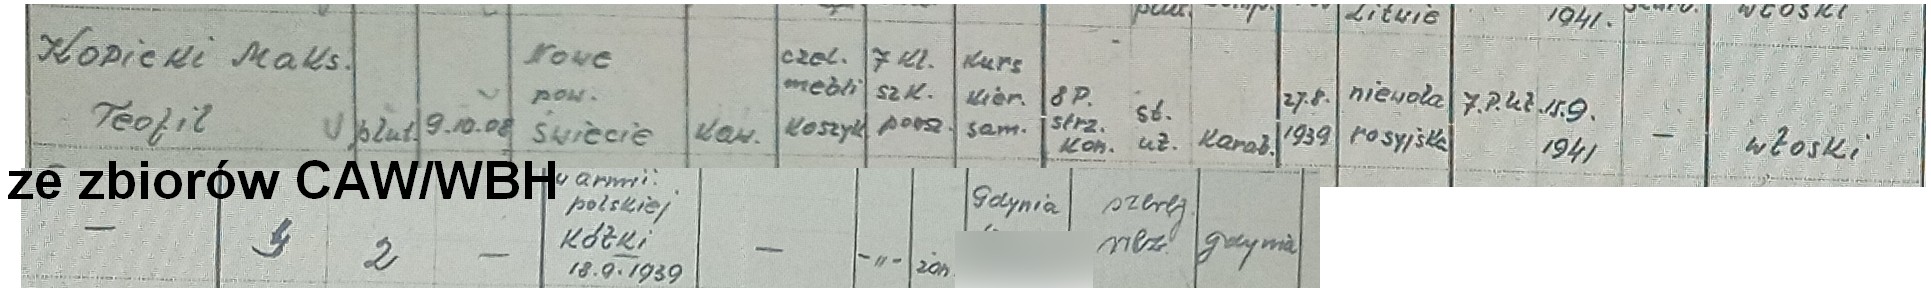 Litwie 1941. włoski
Kopicki Maks. Nowe czel. 7 kl. kurs
pow. mebli szk. kier. 8 P. 27.8. niewola 7.P.uł. 15.9.
Teofil V plut. 9.10.08 Świecie kaw. koszyk powsz. sam. strz. st. 1939 rosyjska
kon. uł. karab. 1941 — włoski
ze zbiorów CAW/WBH
w armii
polskiej Gdynia szereg.
— 2 — Kózki — -„- rez. Gdynia
18.9.1939 żon.